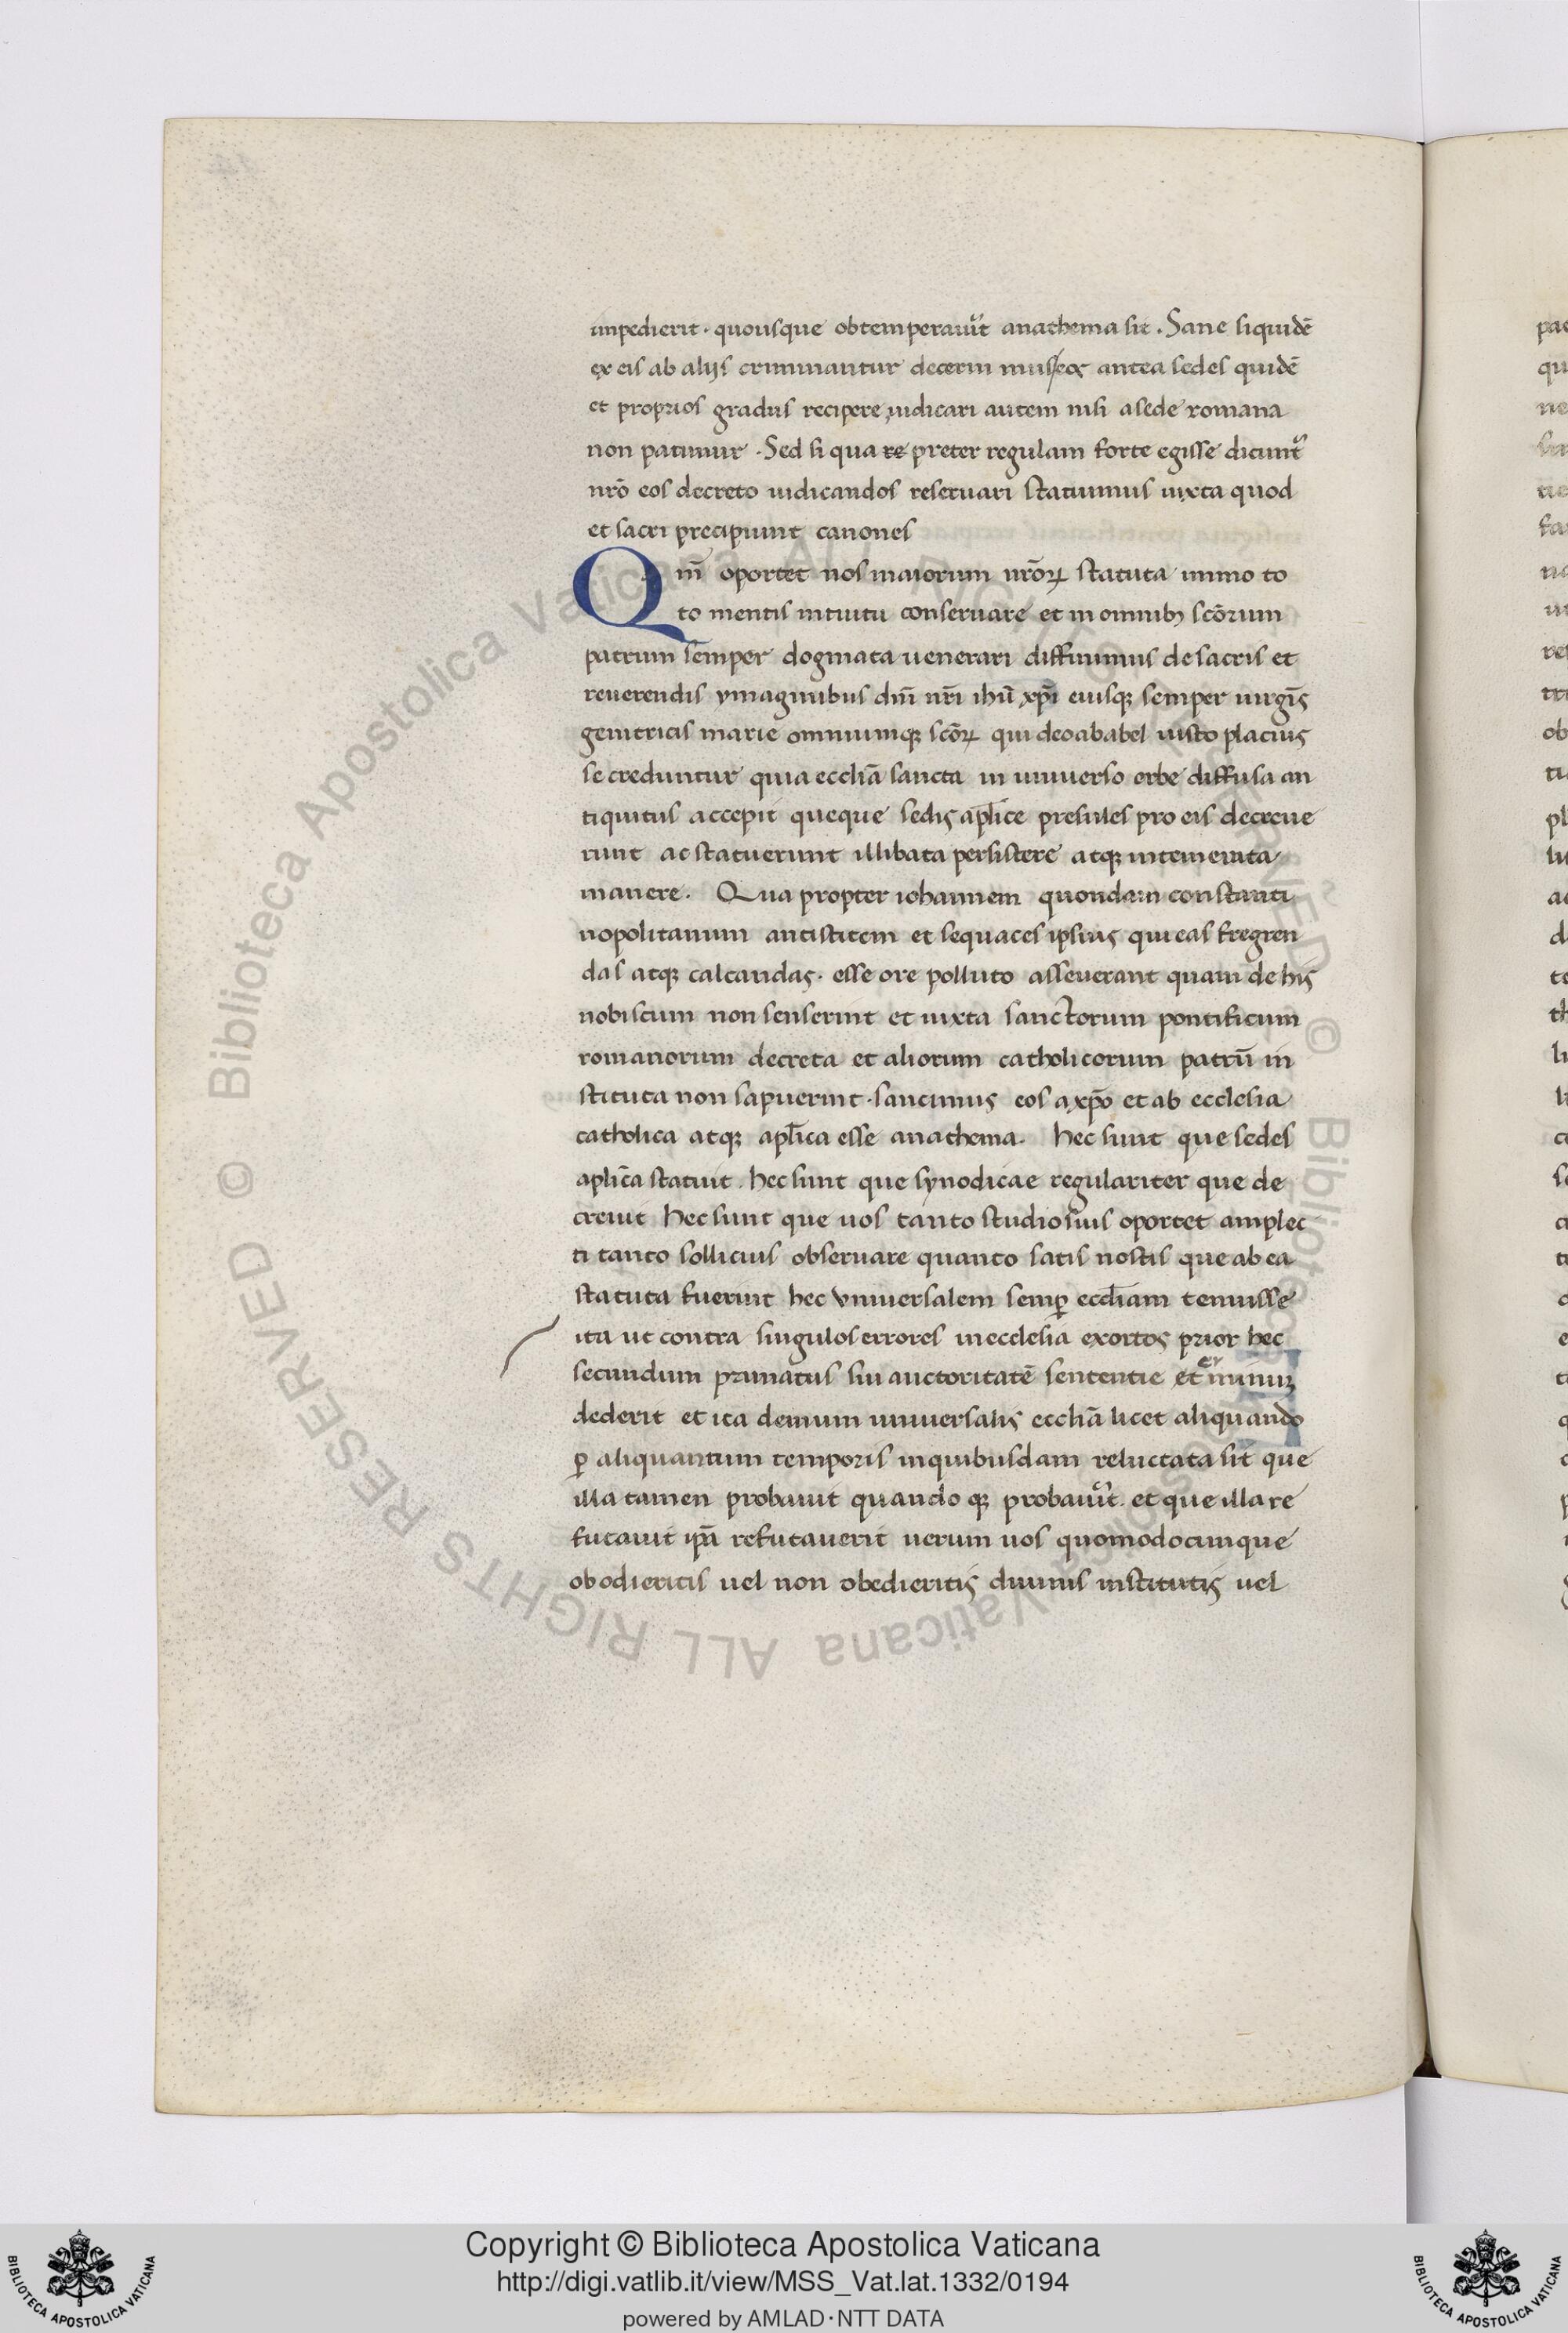 impedierit · quousque obtemperau͛it anathema sit . Sane siquidē
ex eis ab alijs criminantur decerni mus/eos antea sedes quidē
et proprios gradus recipere, iudicari autem nisi asede romana
non patimur . Sed si qua re preter regulam forte egisse dicunt᷑
nr̄o eos decreto iudicandos reseruari statuimus iuxta quod
et sacri precipiunt canones
Qm̄ oportet nos maiorum nr̄oꝝ statuta immo to
to mentis intuitu conseruare et in omnibꝫ scōrum
patrum semper dogmata uenerari diffinimus de sacris et
reuerendis ymaginibus dn̄i nr̄i ihū xp̄i eiusqꝫ semper uirgīs
genitricis marie omniumqꝫ scōꝝ qui deo ababel iusto placuis
se creduntur quia ecclīa sancta in uniuerso orbe diffusa an
tiquitus accepit queque sedis apl̄ice presules pro eis decreue
runt ac statuerunt illibata persistere atqꝫ intemerata
manere . Qua propter iohannem quondam constanti
nopolitanum antistitem et sequaces ipsius qui eas fregren
das atqꝫ calcandas · esse ore polluto asseuerant quam de his
nobiscum non senserint et iuxta sanctorum pontificum
romanorum decreta et aliorum catholicorum patrū in
stituta non sapuerint · sancimus eos a xp̄o et ab ecclesia
catholica atqꝫ apl̄ica esse anathema . hec sunt que sedes
aplīca statuit . hec sunt que synodicae regulariter que de
creuit hec sunt que uos tanto studiosius oportet amplec
ti tanto sollicius obseruare quanto satis nostis que ab ea
statuta fuerint hec vniuersalem semꝑ eccl̄iam tenuisse
ita ut contra singulos errores in ecclesia exortos prior hec
secundum primatus sui auctoritatē sententie et minuꝫ
dederit et ita demum uniuersalis ecclīa licet aliquando
ꝑ aliquantum temporis in quibusdam reluctata sit que
illa tamen probauit quando qꝫ probau͛it . et que illa re
futauit ip̄a refutauerit uerum uos quomodocunque
obodieritis uel non obedieritis diuinis institutis uel
Copyright © Biblioteca Apostolica Vaticana
http://digi.vatlib.it/view/MSS_Vat.lat.1332/0194
powered by AMLAD·NTT DATA